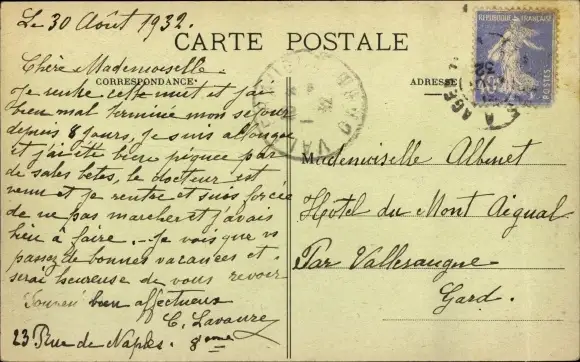 Le 30 Août 1932.
CARTE POSTALE
Chère Mademoiselle.
CORRESPONDANCE
Je rentre cette nuit et j'ai
bien mal terminée mon séjour
depuis 8 jours, je suis allongée
et j'ai été bien piquée par
de sales bêtes, le docteur est
venu et je rentre et suis forcée
de ne pas marcher et j'avais
bien à faire. Je vois que vs
passez de bonnes vacances et
serai heureuse de vous revoir
bien affectueux
C. Lavaure
23 Rue de Naples. 8ème
ADRESSE
REPUBLIQUE FRANÇAISE
POSTES
Mademoiselle Albinet
Hôtel du Mont Aigual
Par Valleraugue
Gard.